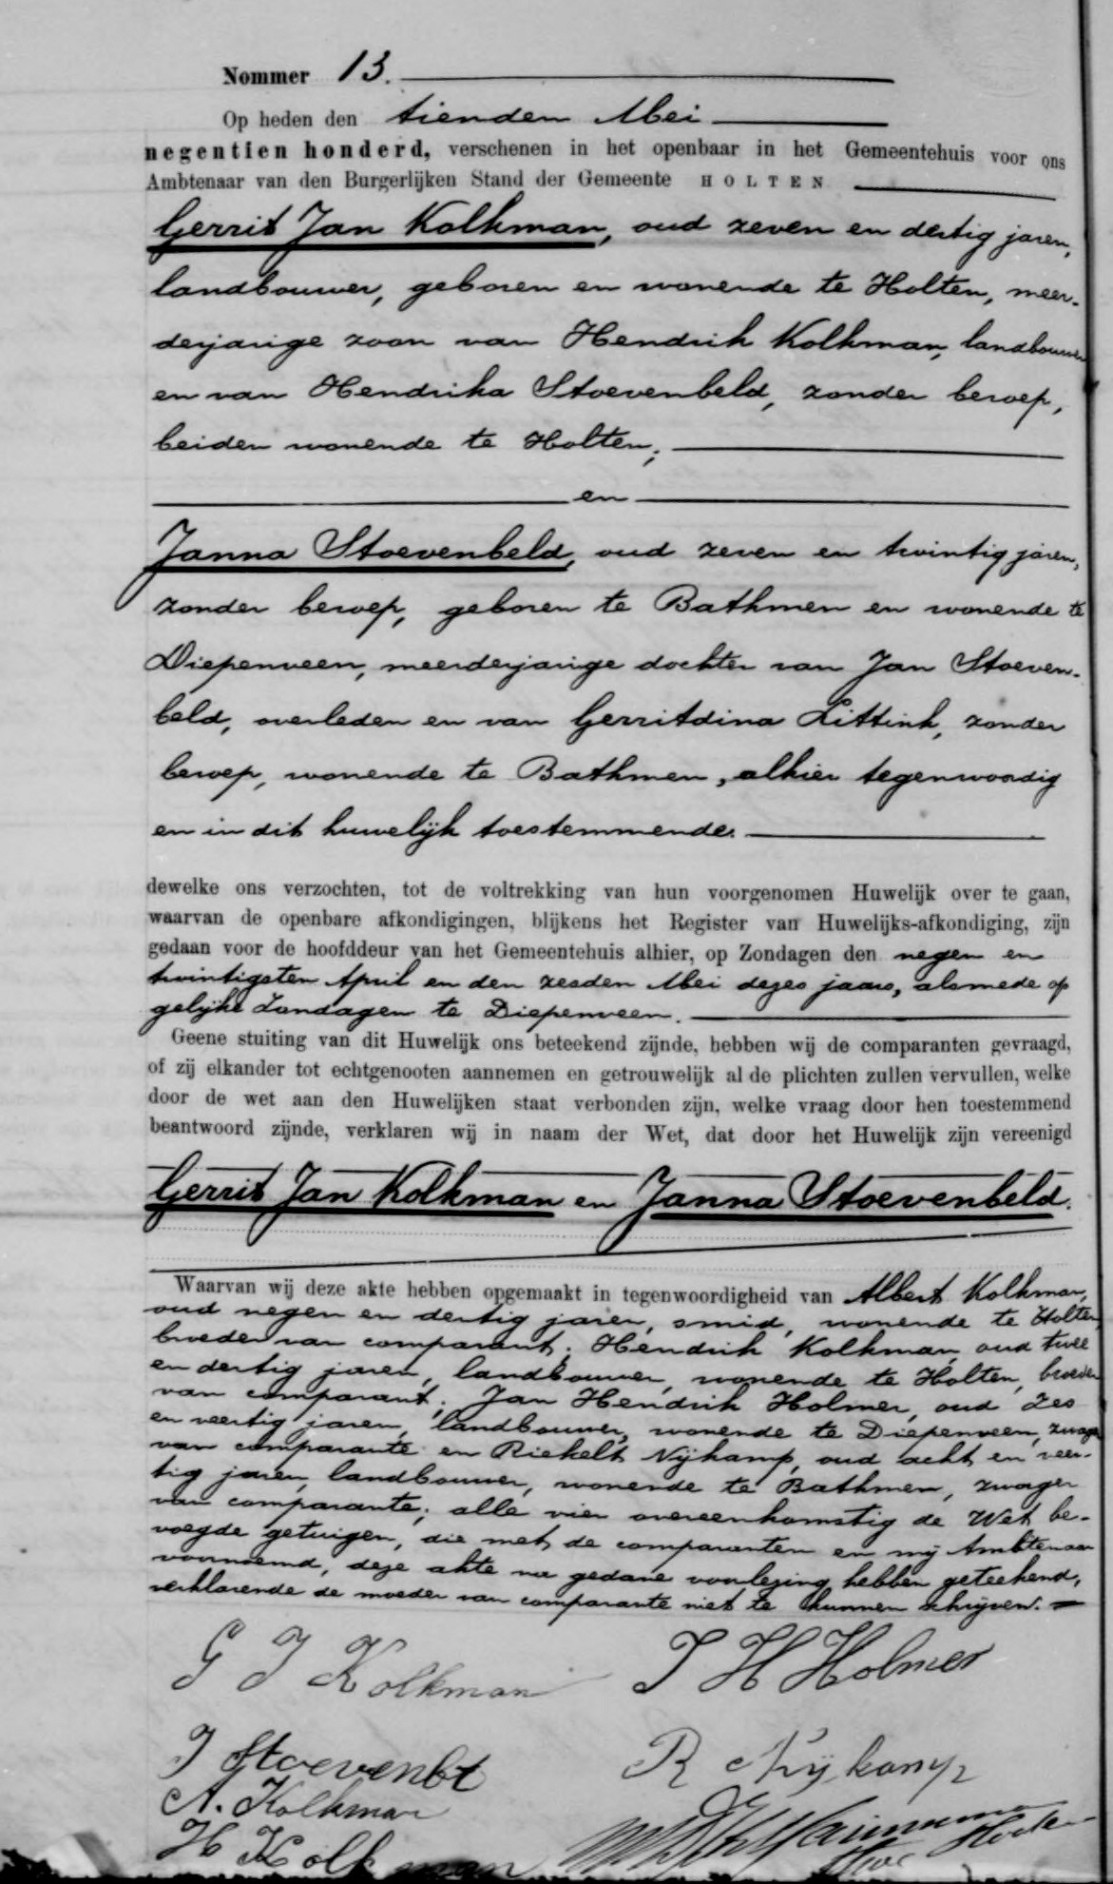 Nommer 13.
Op heden den tienden Mei
negentien honderd, verschenen in het openbaar in het Gemeentehuis voor ons
Ambtenaar van den Burgerlijken Stand der Gemeente HOLTEN
Gerrit Jan Kolkman, oud zeven en dertig jaren,
landbouwer, geboren en wonende te Holten, meer-
derjarige zoon van Hendrik Kolkman, landbouwer
en van Hendrika Stoevenbeld, zonder beroep,
beiden wonende te Holten;
en
Janna Stoevenbeld, oud zeven en twintig jaren,
zonder beroep, geboren te Bathmen en wonende te
Diepenveen, meerderjarige dochter van Jan Stoeven-
beld, overleden en van Gerritdina Littink, zonder
beroep, wonende te Bathmen, alhier tegenwoordig
en in dit huwelijk toestemmende.
dewelke ons verzochten, tot de voltrekking van hun voorgenomen Huwelijk over te gaan,
waarvan de openbare afkondigingen, blijkens het Register van Huwelijks-afkondiging, zijn
gedaan voor de hoofddeur van het Gemeentehuis alhier, op Zondagen den negen en
twintigsten April en den zesden Mei dezes jaars, alsmede op
gelijke Zondagen te Diepenveen.
Geene stuiting van dit Huwelijk ons beteekend zijnde, hebben wij de comparanten gevraagd,
of zij elkander tot echtgenooten aannemen en getrouwelijk al de plichten zullen vervullen, welke
door de wet aan den Huwelijken staat verbonden zijn, welke vraag door hen toestemmend
beantwoord zijnde, verklaren wij in naam der Wet, dat door het Huwelijk zijn vereenigd
Gerrit Jan Kolkman en Janna Stoevenbeld.
Waarvan wij deze akte hebben opgemaakt in tegenwoordigheid van Albert Kolkman,
oud negen en dertig jaren, smid, wonende te Holten,
broeder van comparant; Hendrik Kolkman, oud twee
en dertig jaren, landbouwer, wonende te Holten, broeder
van comparant; Jan Hendrik Holmer, oud zes
en veertig jaren, landbouwer, wonende te Diepenveen, zwager
van comparante en Riekelt Nijkamp, oud acht en veer-
tig jaren, landbouwer, wonende te Bathmen, zwager
van comparante; alle vier overeenkomstig de Wet be-
voegde getuigen, die met de comparanten en mij Ambtenaar
voornoemd, deze akte na gedane voorlezing hebben geteekend,
verklarende de moeder van comparante niet te kunnen schrijven.
G J Kolkman
J H Holmer
J Stoevenbt
R Nijkamp
A. Kolkman
H Kolkman